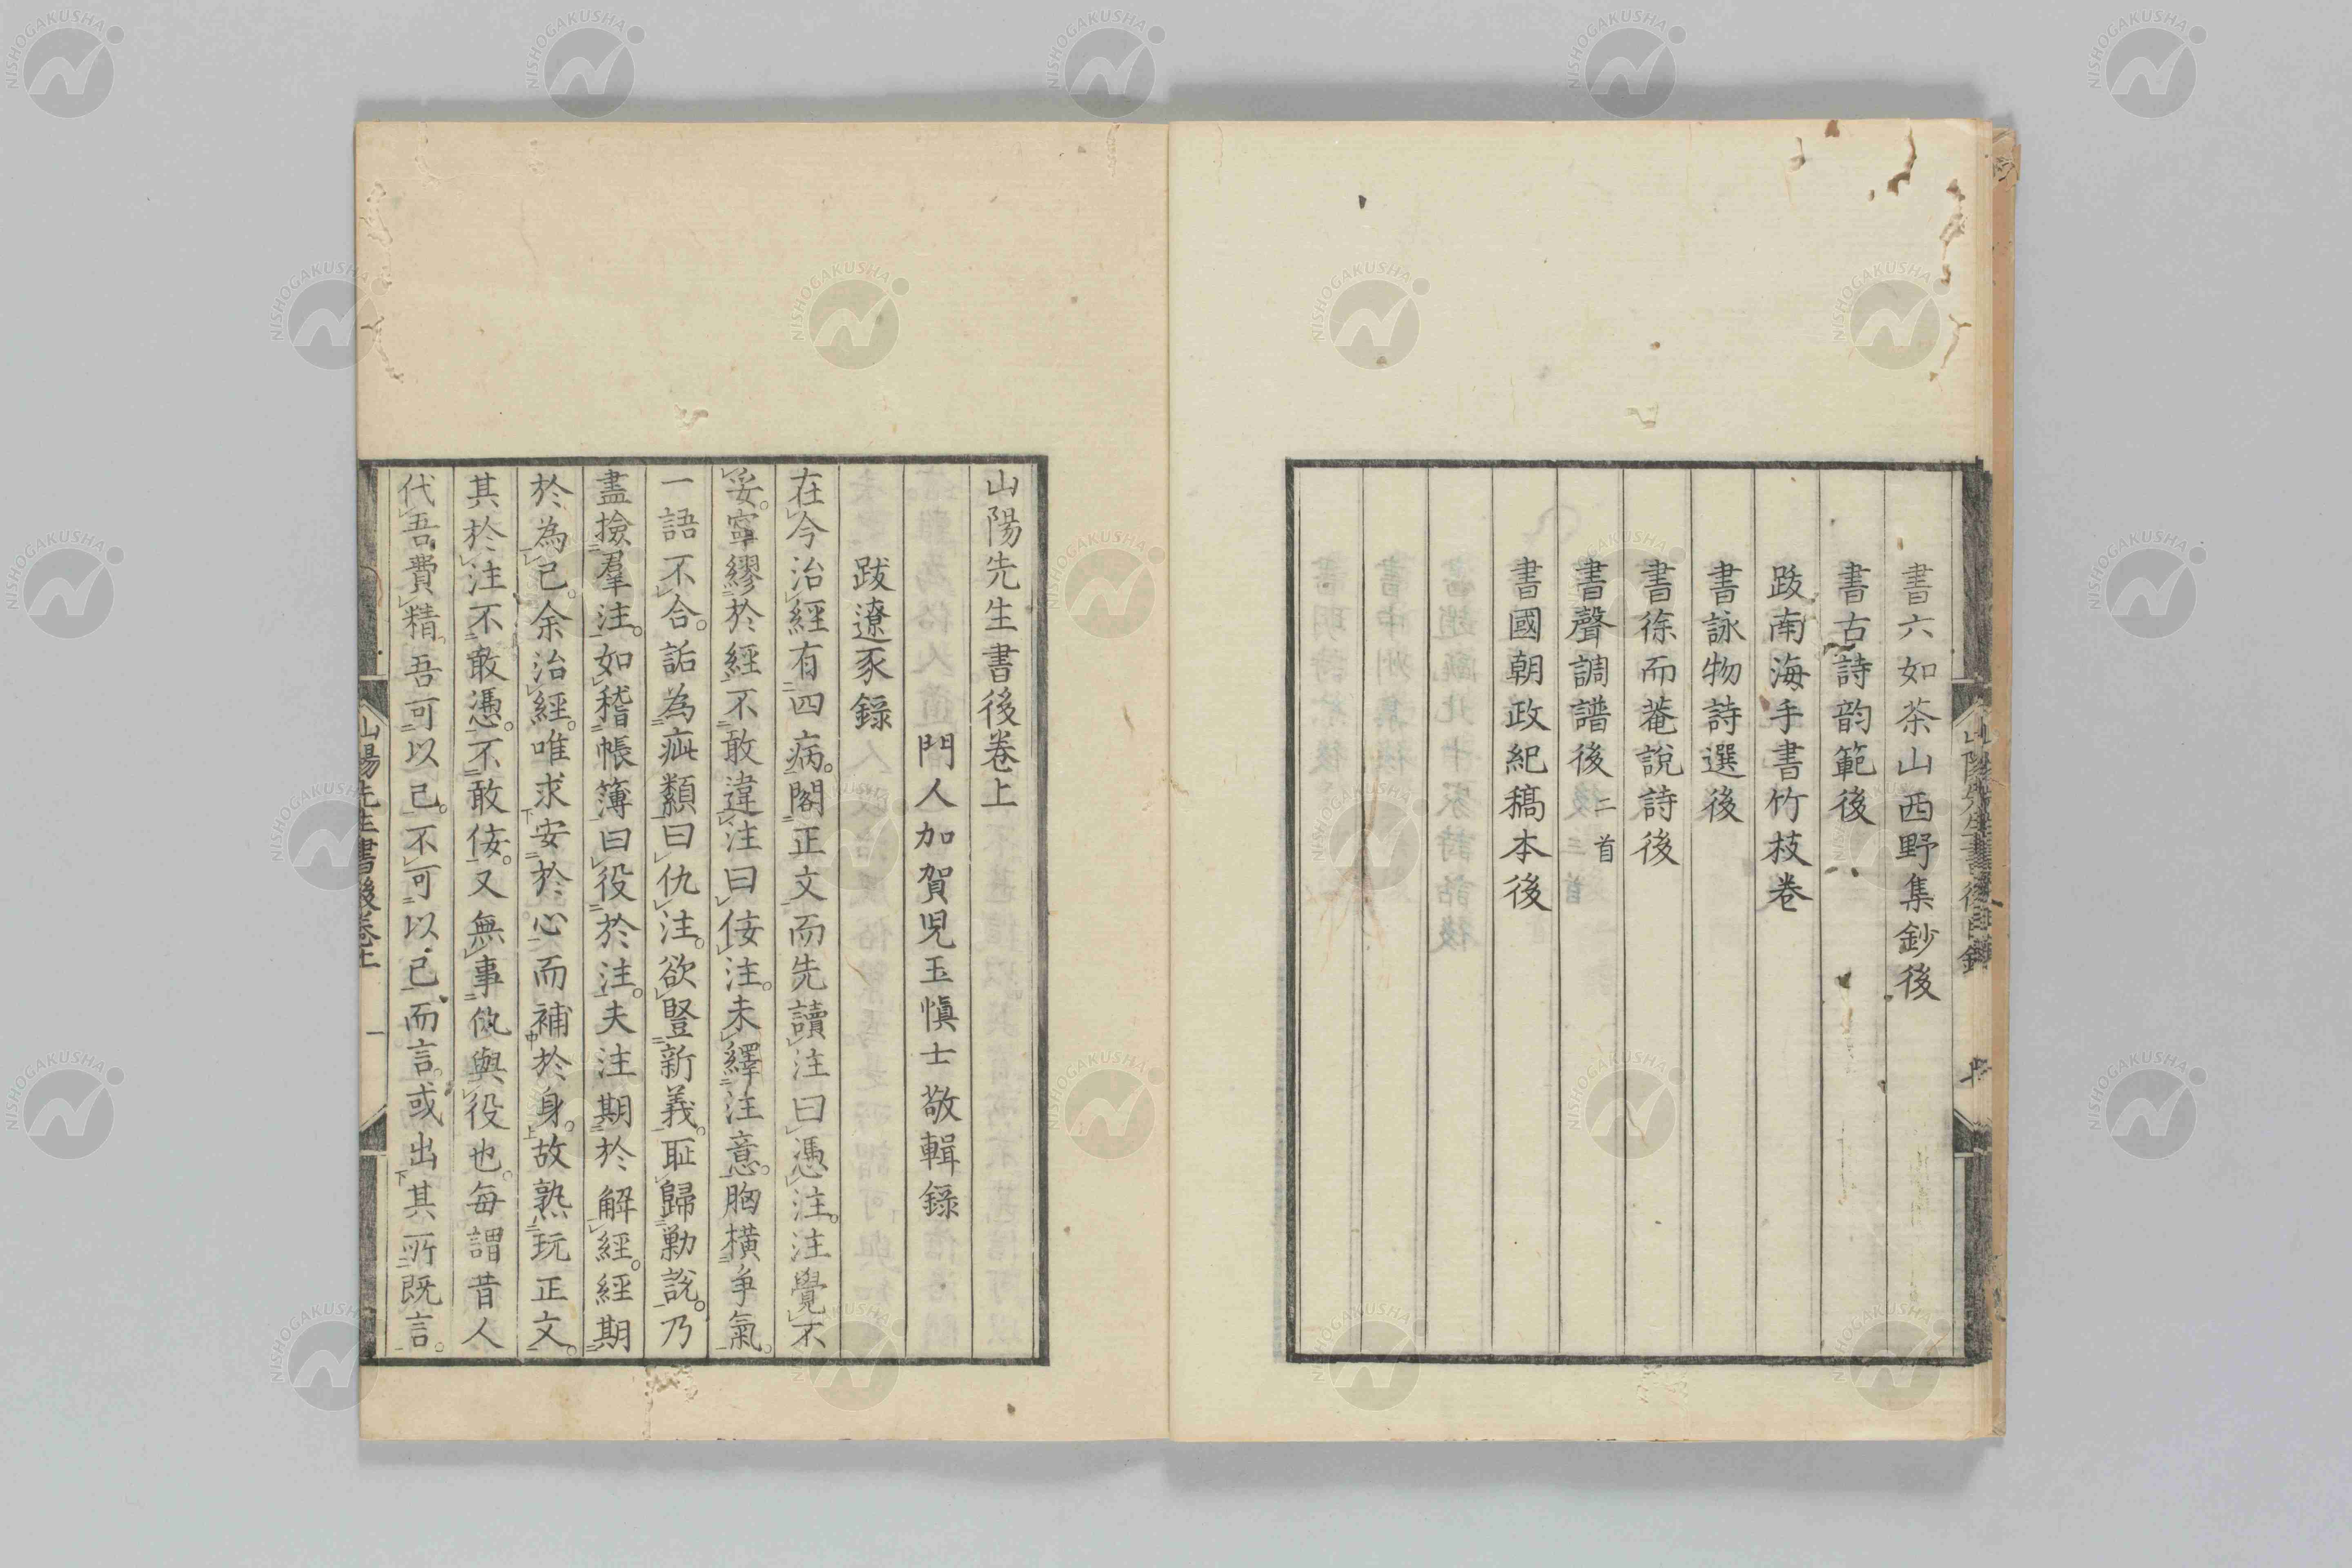 書六如茶山西野集鈔後
書古詩韵範後
跋南海手書竹枝卷
書詠物詩選後
書徐而菴說詩後
書聲調譜後二首
書國朝政紀稿本後
山陽先生書後卷上
門人加賀児玉愼士敬輯錄
跋遼豕錄
在今治經有四病。閣正文而先讀注曰憑注。注覺不
妥。寧繆於經不敢違注曰侫注。未繹注意。胸橫爭氣。
一語不合。詬為疵纇曰仇注。欲豎新義。恥歸勦說。乃
盡撿羣注。如稽帳簿曰役於注。夫注期於解經。經期
於為己。余治經。唯求安於心而補於身。故熟玩正文。
其於注不敢憑。不敢侫。又無事仇與役也。每謂昔人
代吾費精。吾可以已。不可以已而言。或出其所既言。
山陽先生書後卷上
一
NISHOGAKUSHA